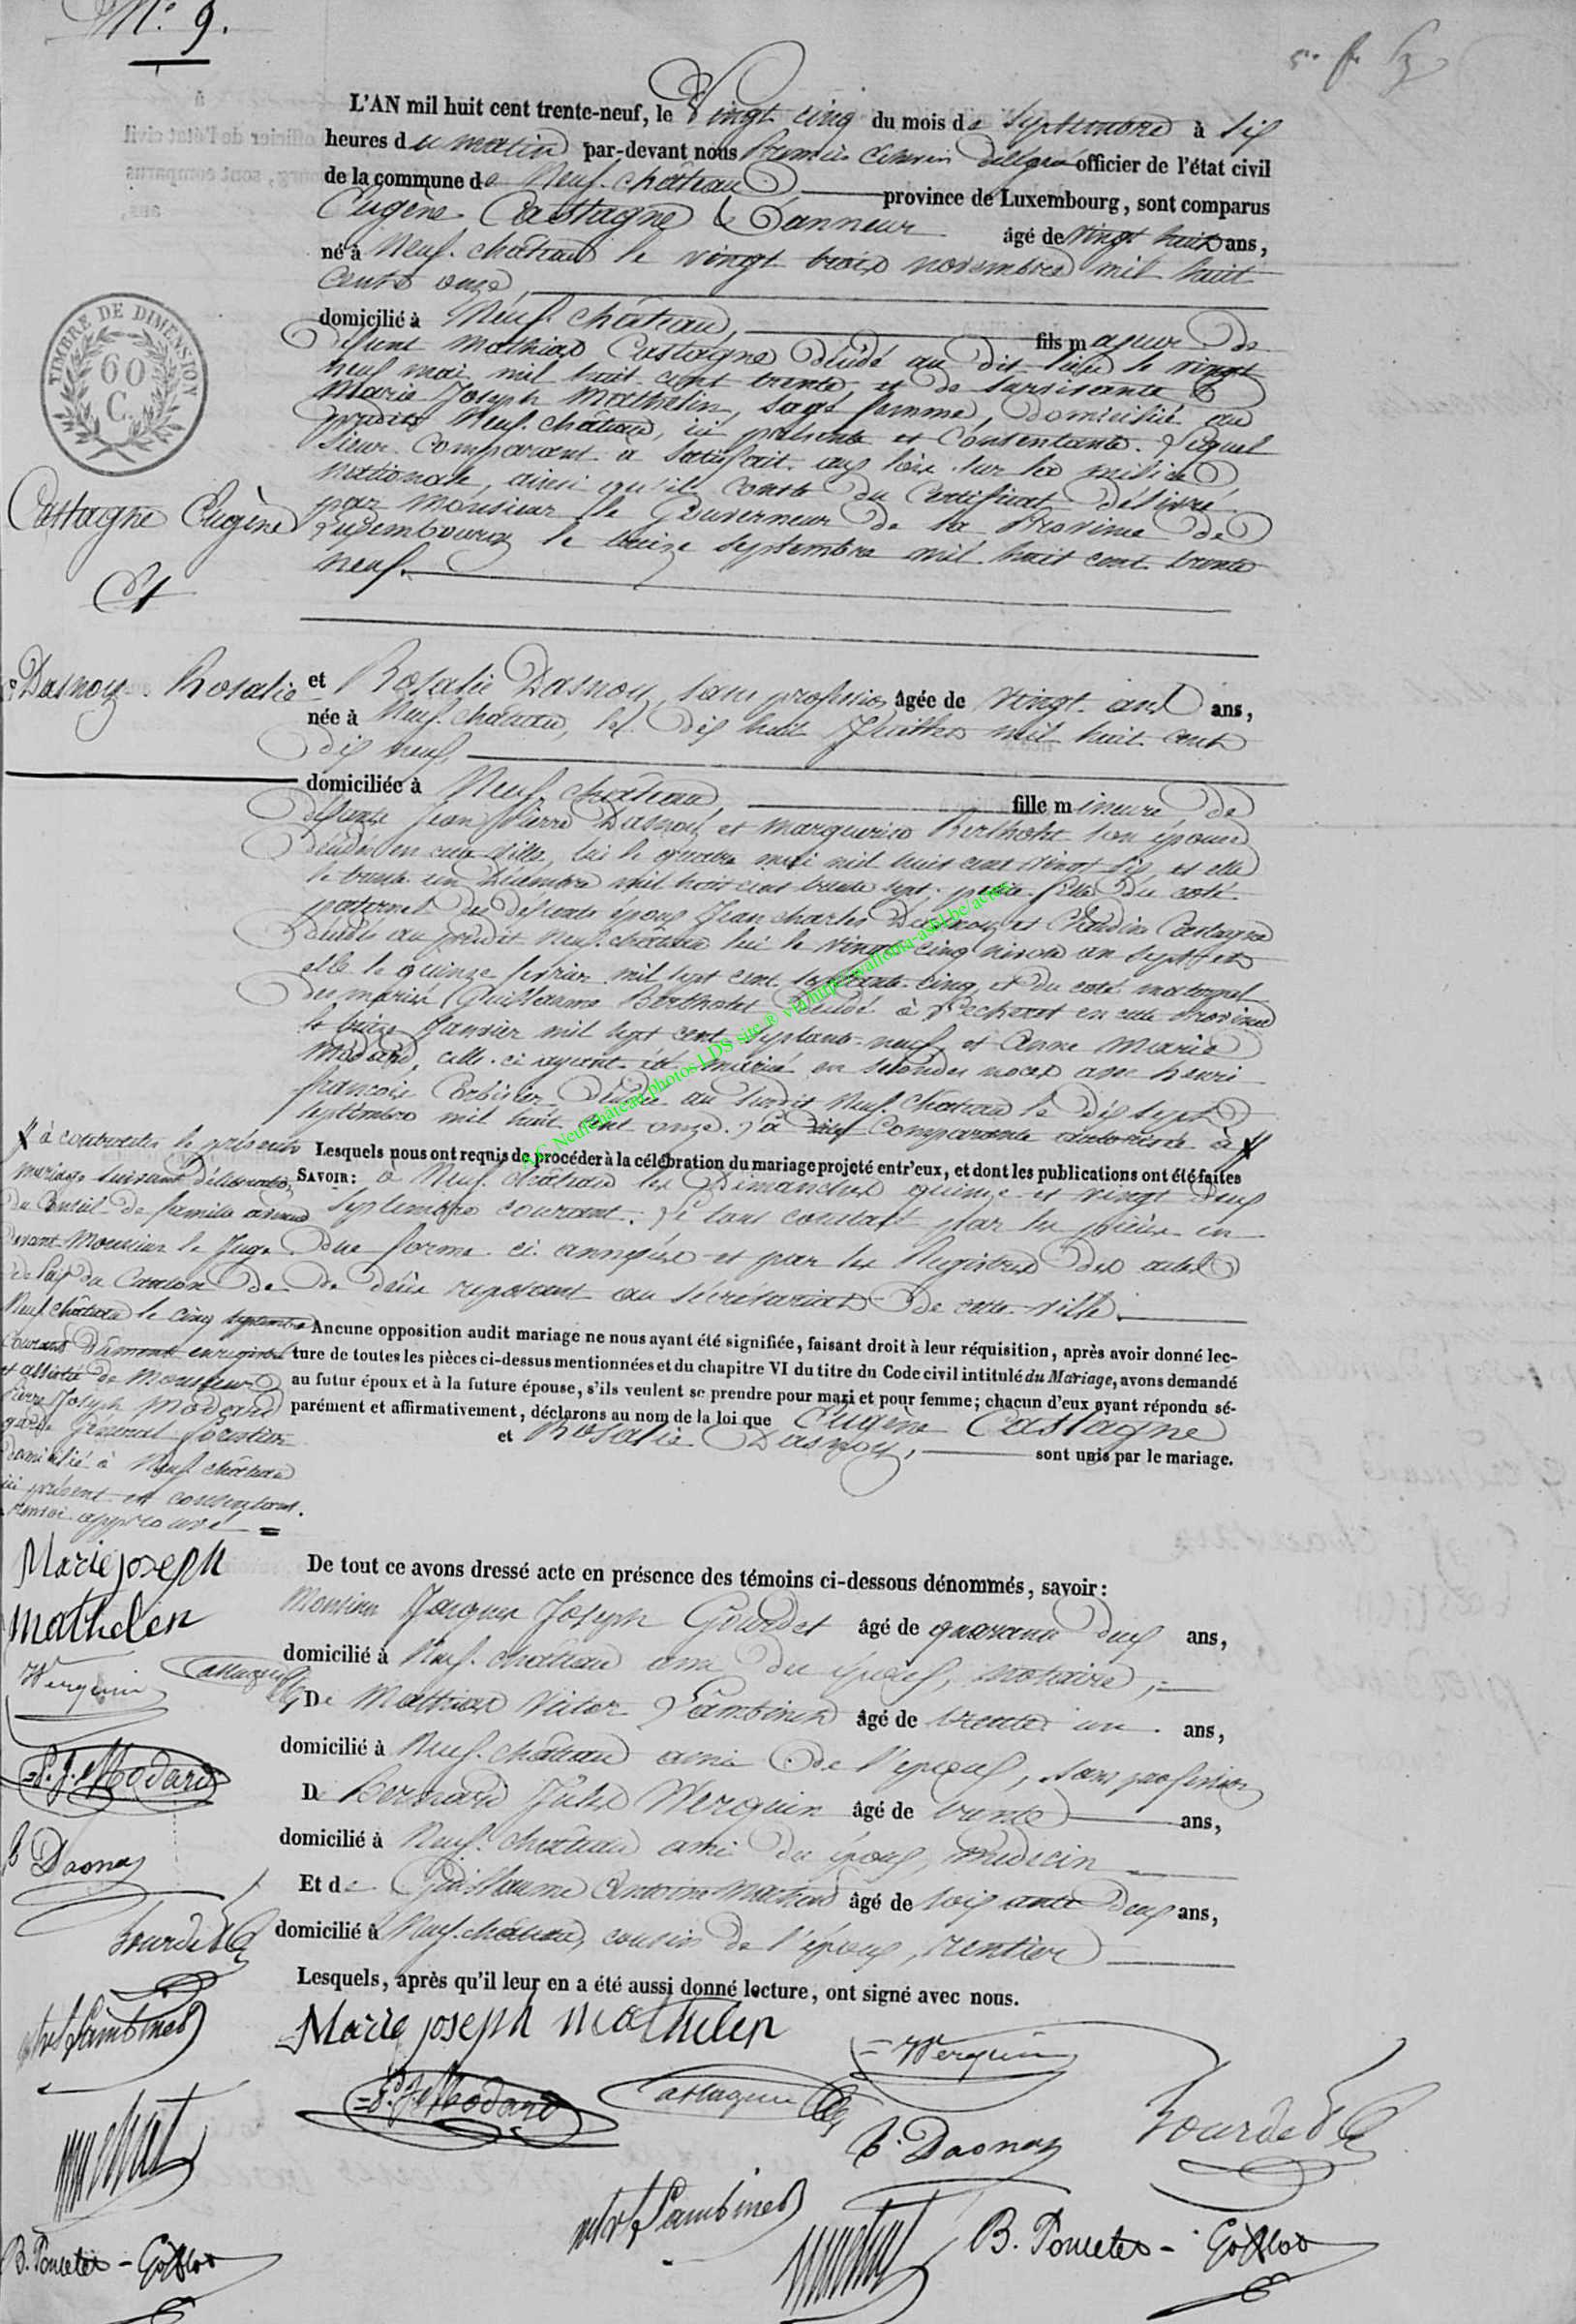 N.° 9.
L'AN mil huit cent trente-neuf, le Vingt cinq du mois de Septembre à six
heures du matin par-devant nous Premier Echevin délégué officier de l'état civil
de la commune de Neuf-château province de Luxembourg, sont comparus
Eugène Castagne Tanneur âgé de vingt huit ans,
né à Neuf-château le vingt trois novembre mil huit
cent onze,
domicilié à Neuf-château, fils majeur de
défunt Mathias Castagne décédé au dit lieu le vingt
neuf mai mil huit cent trente et de survivante
Marie Joseph Mathelin, sage femme, domiciliée au
prédit Neuf-château, ici présente et consentante. Lequel
sieur Comparant a satisfait aux loix sur la milice
nationale, ainsi qu'il conste du Certificat délivré
par Monsieur le Gouverneur de la Province de
Luxembourg le treize septembre mil huit cent trente
neuf.
TIMBRE DE DIMENSION
60
C.
Castagne Eugène
Et
Dasnoy Rosalie
et Rosalie Dasnoy, sans profession âgée de vingt ans ans,
née à Neuf-château, le dix huit Juillet mil huit cent
dix neuf,
domiciliée à Neuf-château, fille mineure de
défunts Jean Pierre Dasnoy et Marguerite Bertholet son épouse
décédés en cette ville, lui le quatre mai mil huit cent vingt six, et elle
le trente un Décembre mil huit cent trente sept, petite fille du coté
paternel des défunts époux Jean Charles Dasnoy et Castagne
décédés au prédit Neuf-château lui le vingt cinq nivose an sept et
elle le quinze février mil sept cent cinq, et du coté maternel
des mariés Guillaume Bertholet décédé à en cette Province
le treize Janvier mil sept cent septante-neuf, et Anne Marie
Modard, celle-ci ayant été mariée en secondes noces avec henri
françois décédée au susdit Neuf-château le dix sept
septembre mil huit cent onze. La Comparante autorisée à
à contracter le présent
mariage suivant délibération
du Conseil de famille
devant Monsieur le Juge
de Paix du Canton de
Neuf-château le cinq septembre
courant dûment enregistré
et assistée de Monsieur
Pierre Joseph Modard
garde Général forestier
domicilié à Neuf-château
ici présent et consentant.
Renvoi approuvé =
Lesquels nous ont requis de procéder à la célébration du mariage projeté entr'eux, et dont les publications ont été faites
SAVOIR: à Neuf-château les Dimanches quinze et vingt deux
septembre courant. Le tout constaté par les pièces en
due forme ci annexées et par les Registres des actes
de décès reposant au sécrétariat de cette ville.
Aucune opposition audit mariage ne nous ayant été signifiée, faisant droit à leur réquisition, après avoir donné lec-
ture de toutes les pièces ci-dessus mentionnées et du chapitre VI du titre du Code civil intitulé du Mariage, avons demandé
au futur époux et à la future épouse, s'ils veulent se prendre pour mari et pour femme; chacun d'eux ayant répondu sé-
parément et affirmativement, déclarons au nom de la loi que Eugène Castagne
et Rosalie Dasnoy, sont unis par le mariage.
De tout ce avons dressé acte en présence des témoins ci-dessous dénommés, savoir:
Monsieur Jacques Joseph Gourdet âgé de quarante deux ans,
domicilié à Neuf-château ami du époux, notaire,
De Mathias Victor Lambinet âgé de trente un ans,
domicilié à Neuf-château ami de l'époux, sans profession
De Bernard Jules Werquin âgé de trente ans,
domicilié à Neuf-château ami du époux, médecin
Et de Guillaume Antoine âgé de soixante deux ans,
domicilié à Neuf-château, cousin de l'époux, rentier
Lesquels, après qu'il leur en a été aussi donné lecture, ont signé avec nous.
Marie joseph
mathelen
Werquin Castagne
P. J. Modard
R Dasnoy
Gourdet
Lambinet
B. Poncelet - Gofflot
Marie joseph mathelen
Werquin
P. J. Modard Castagne
R. Dasnoy Gourdet
Lambinet
B. Poncelet - Gofflot
A.C. Neufchâteau photos LDS site ® via http://wallonia-asbl.be/actes